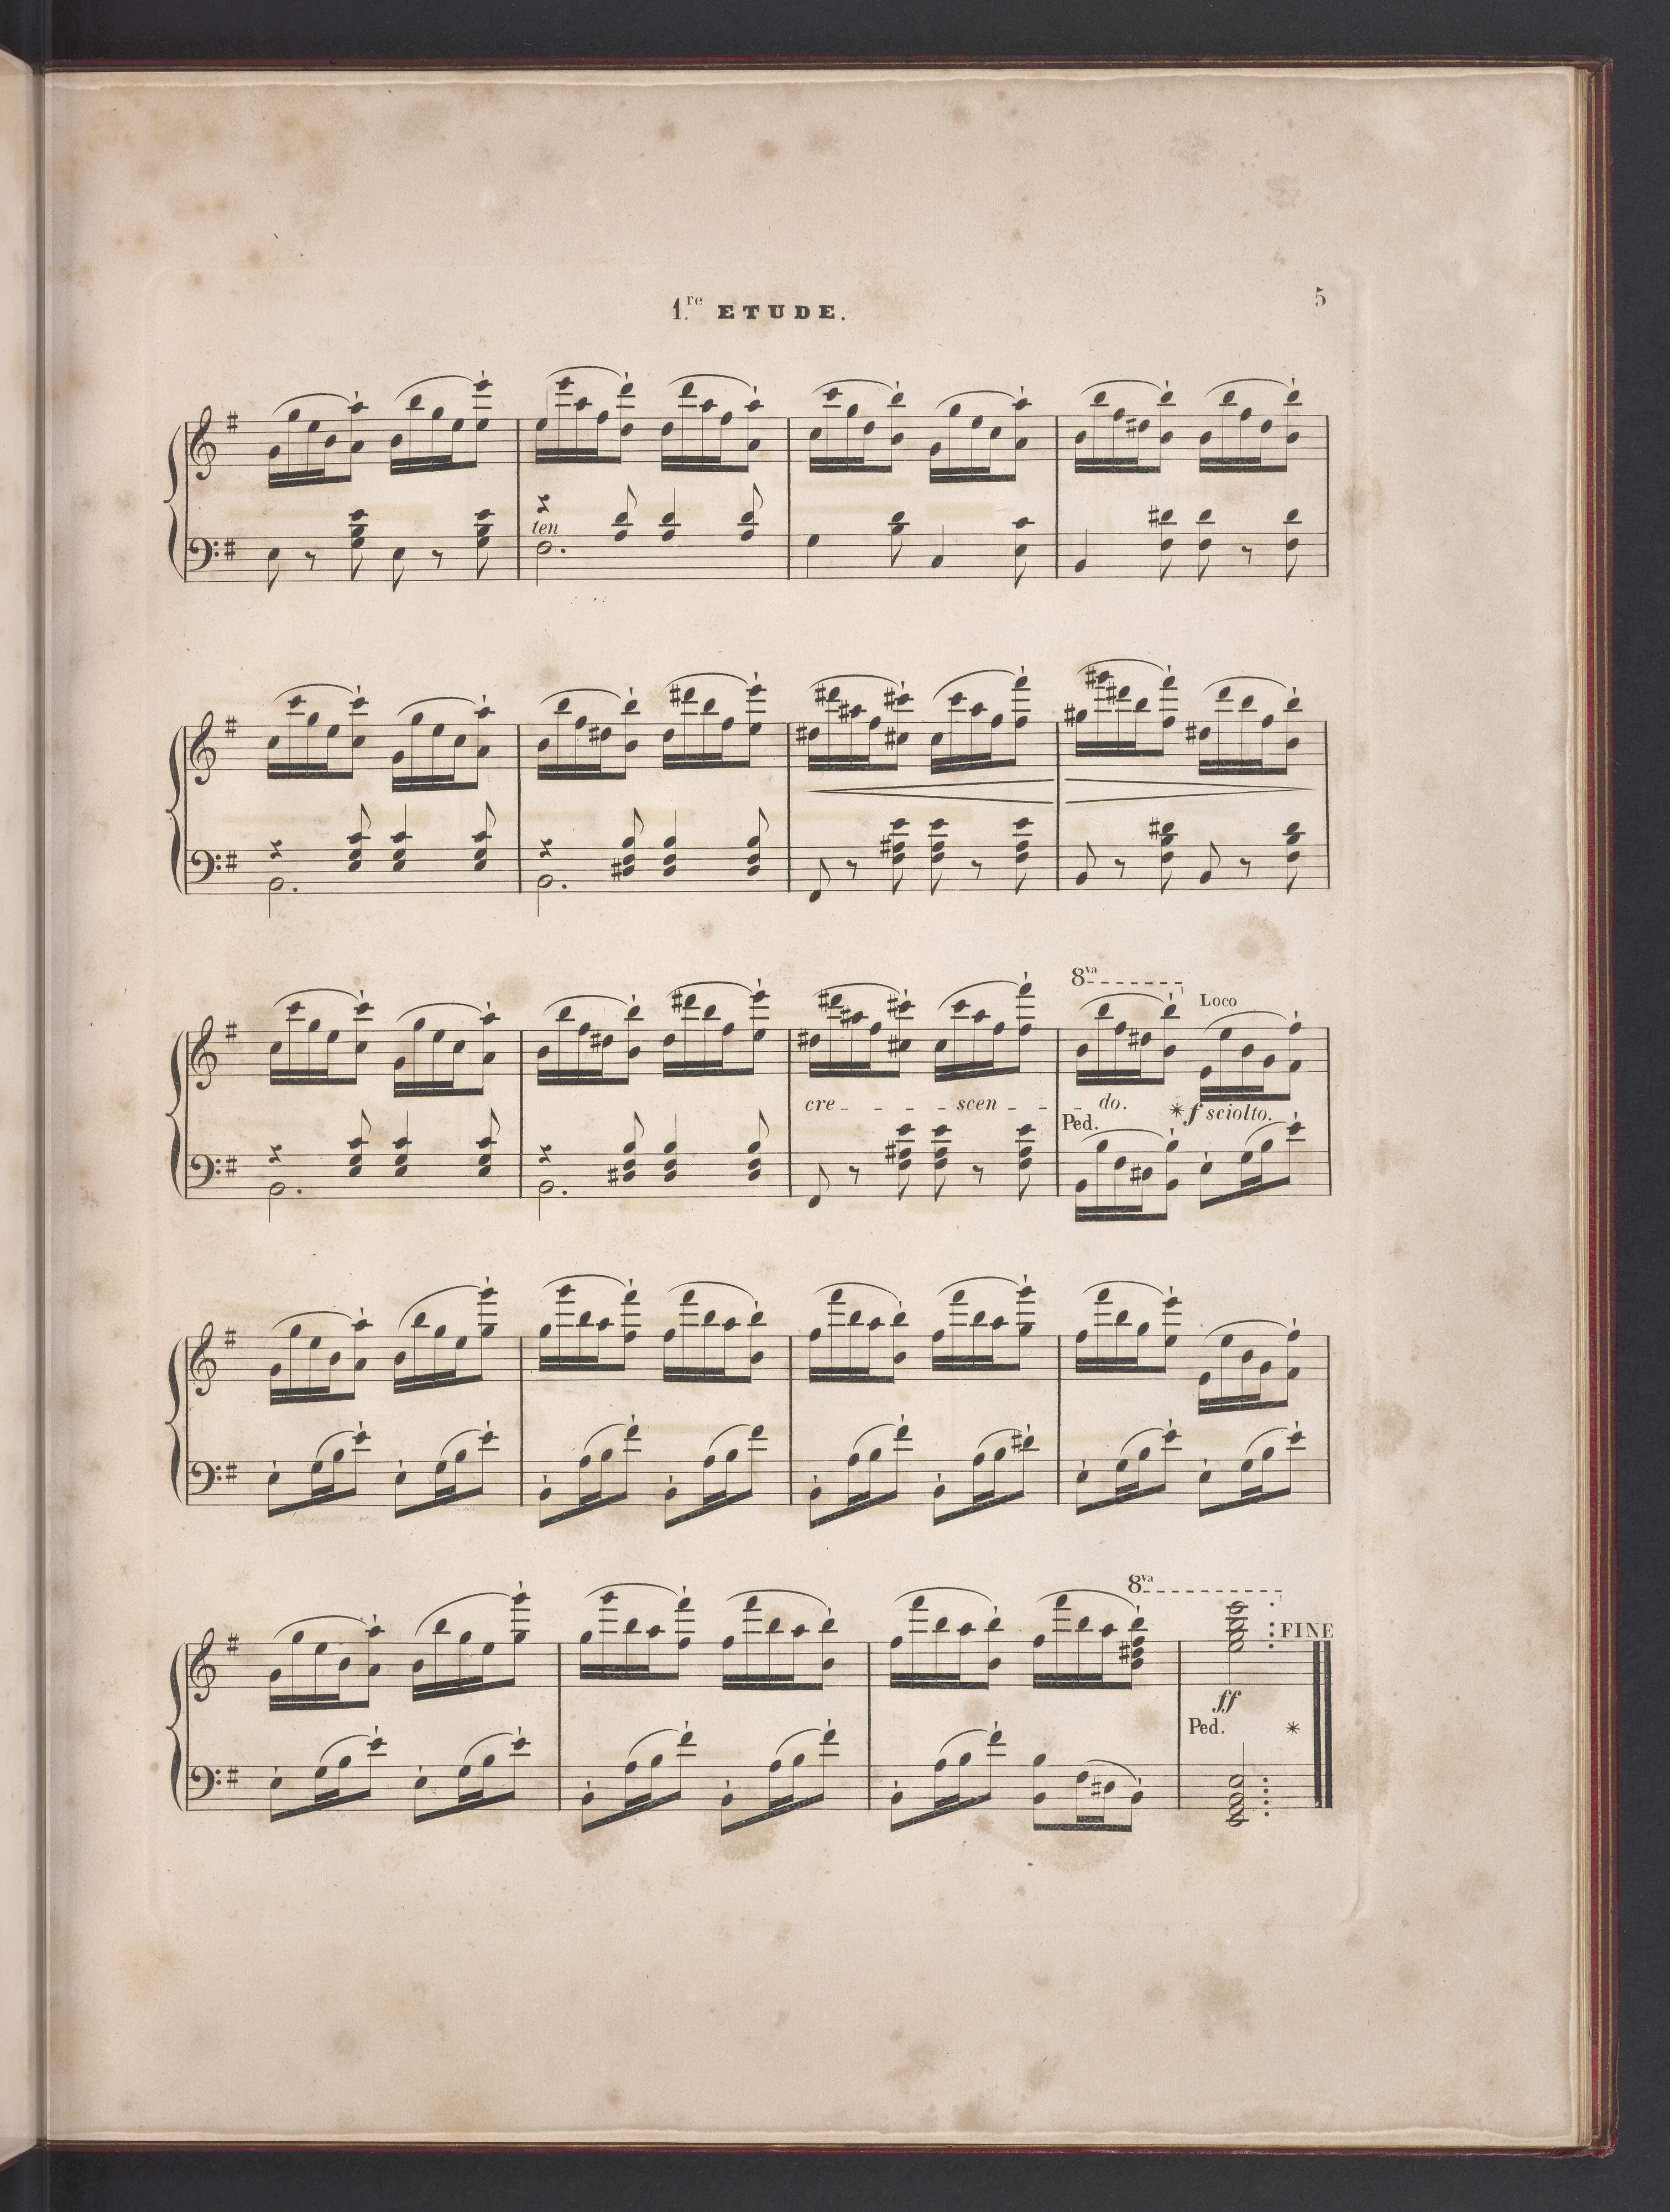 5
1.re ETUDE.
ten
8va
Loco
cre - - - - scen - - - do.
Ped. * f sciolto.
8va
FINE
ff
Ped. *